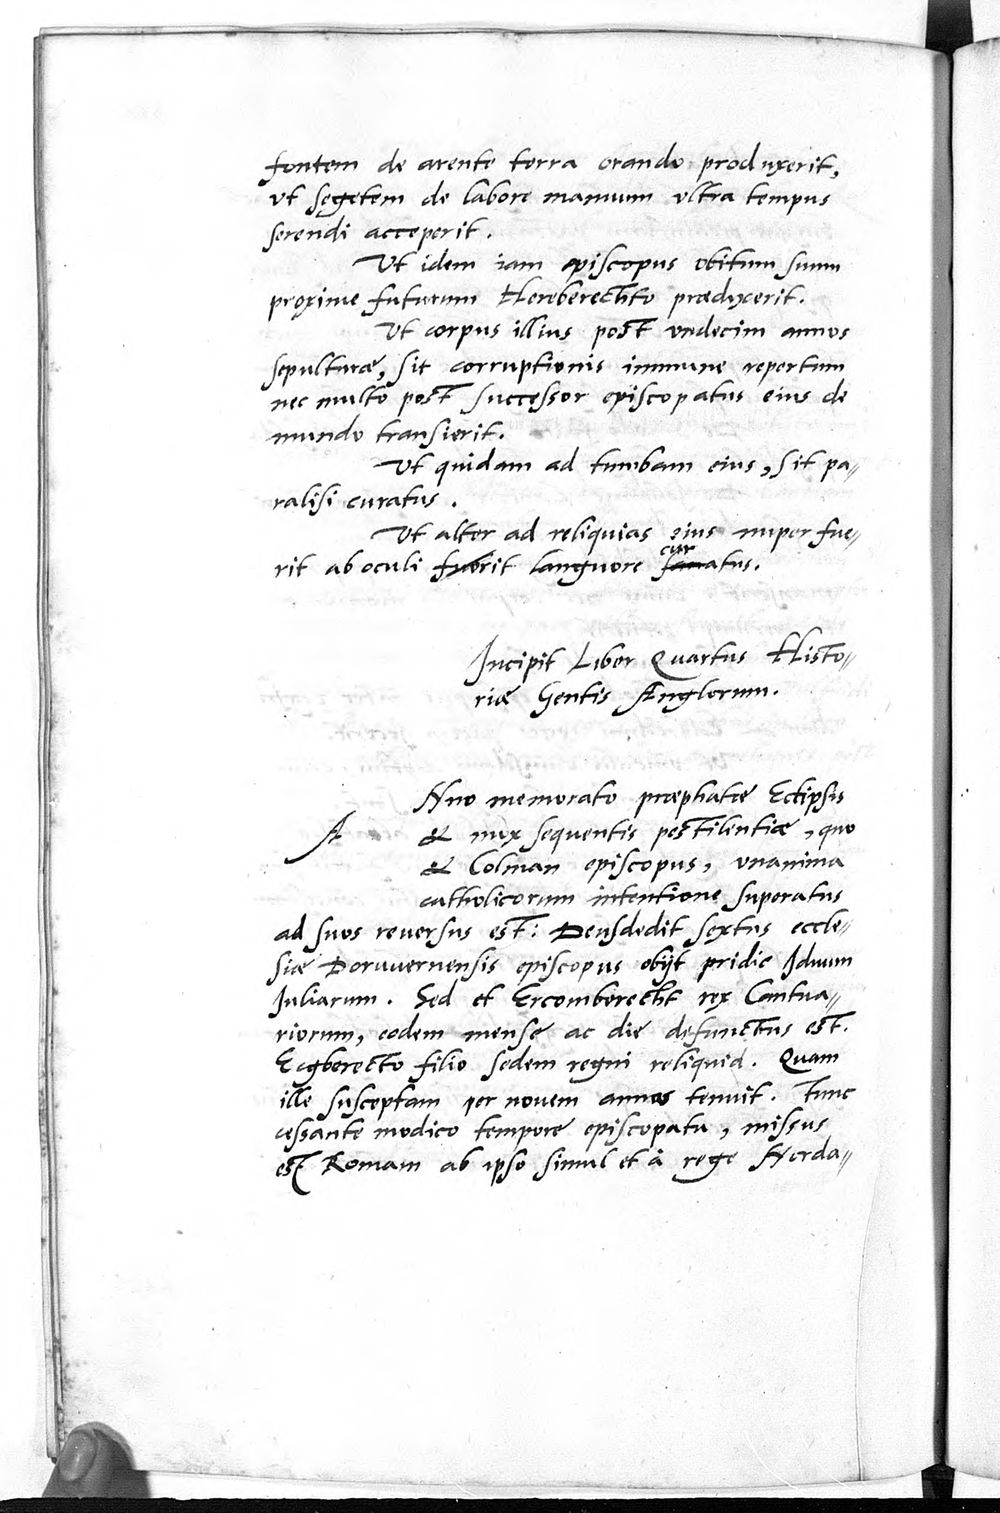 fontem de arente terra orando produxerit,
vt segetem de labore manuum vltra tempus
serendi acceperit.
Vt idem iam episcopus obitum suum
proxime futurum Hereberechto prædixerit.
Vt corpus illius post vndecim annos
sepulturæ, sit corruptionis immune repertum
nec multo post successor episcopatus eius de
mundo transierit.
Vt quidam ad tumbam eius, sit pa〃
ralisi curatus.
Vt alter ad reliquias eius nuper fue〃
cur
rit ab oculi fuerit languore sanatus.
Incipit Liber Quartus Histo〃
riæ Gentis Anglorum.
Anno memorato præphatæ Eclipsis
A & mox sequentis pestilentiæ, quo
& Colman episcopus, vnanima
catholicorum intentione superatus
ad suos reuersus est: Deusdedit sextus eccle〃
siæ Doruuernensis episcopus obijt pridie Iduum
Iuliarum. Sed et Ercomberecht rex Cantua〃
riorum, eodem mense ac die defunctus est.
Ecgberecto filio sedem regni reliquid. Quam
ille susceptam per nouem annos tenuit. Tunc
cessante modico tempore episcopatu, missus
est Romam ab ipso simul et à rege Norda〃